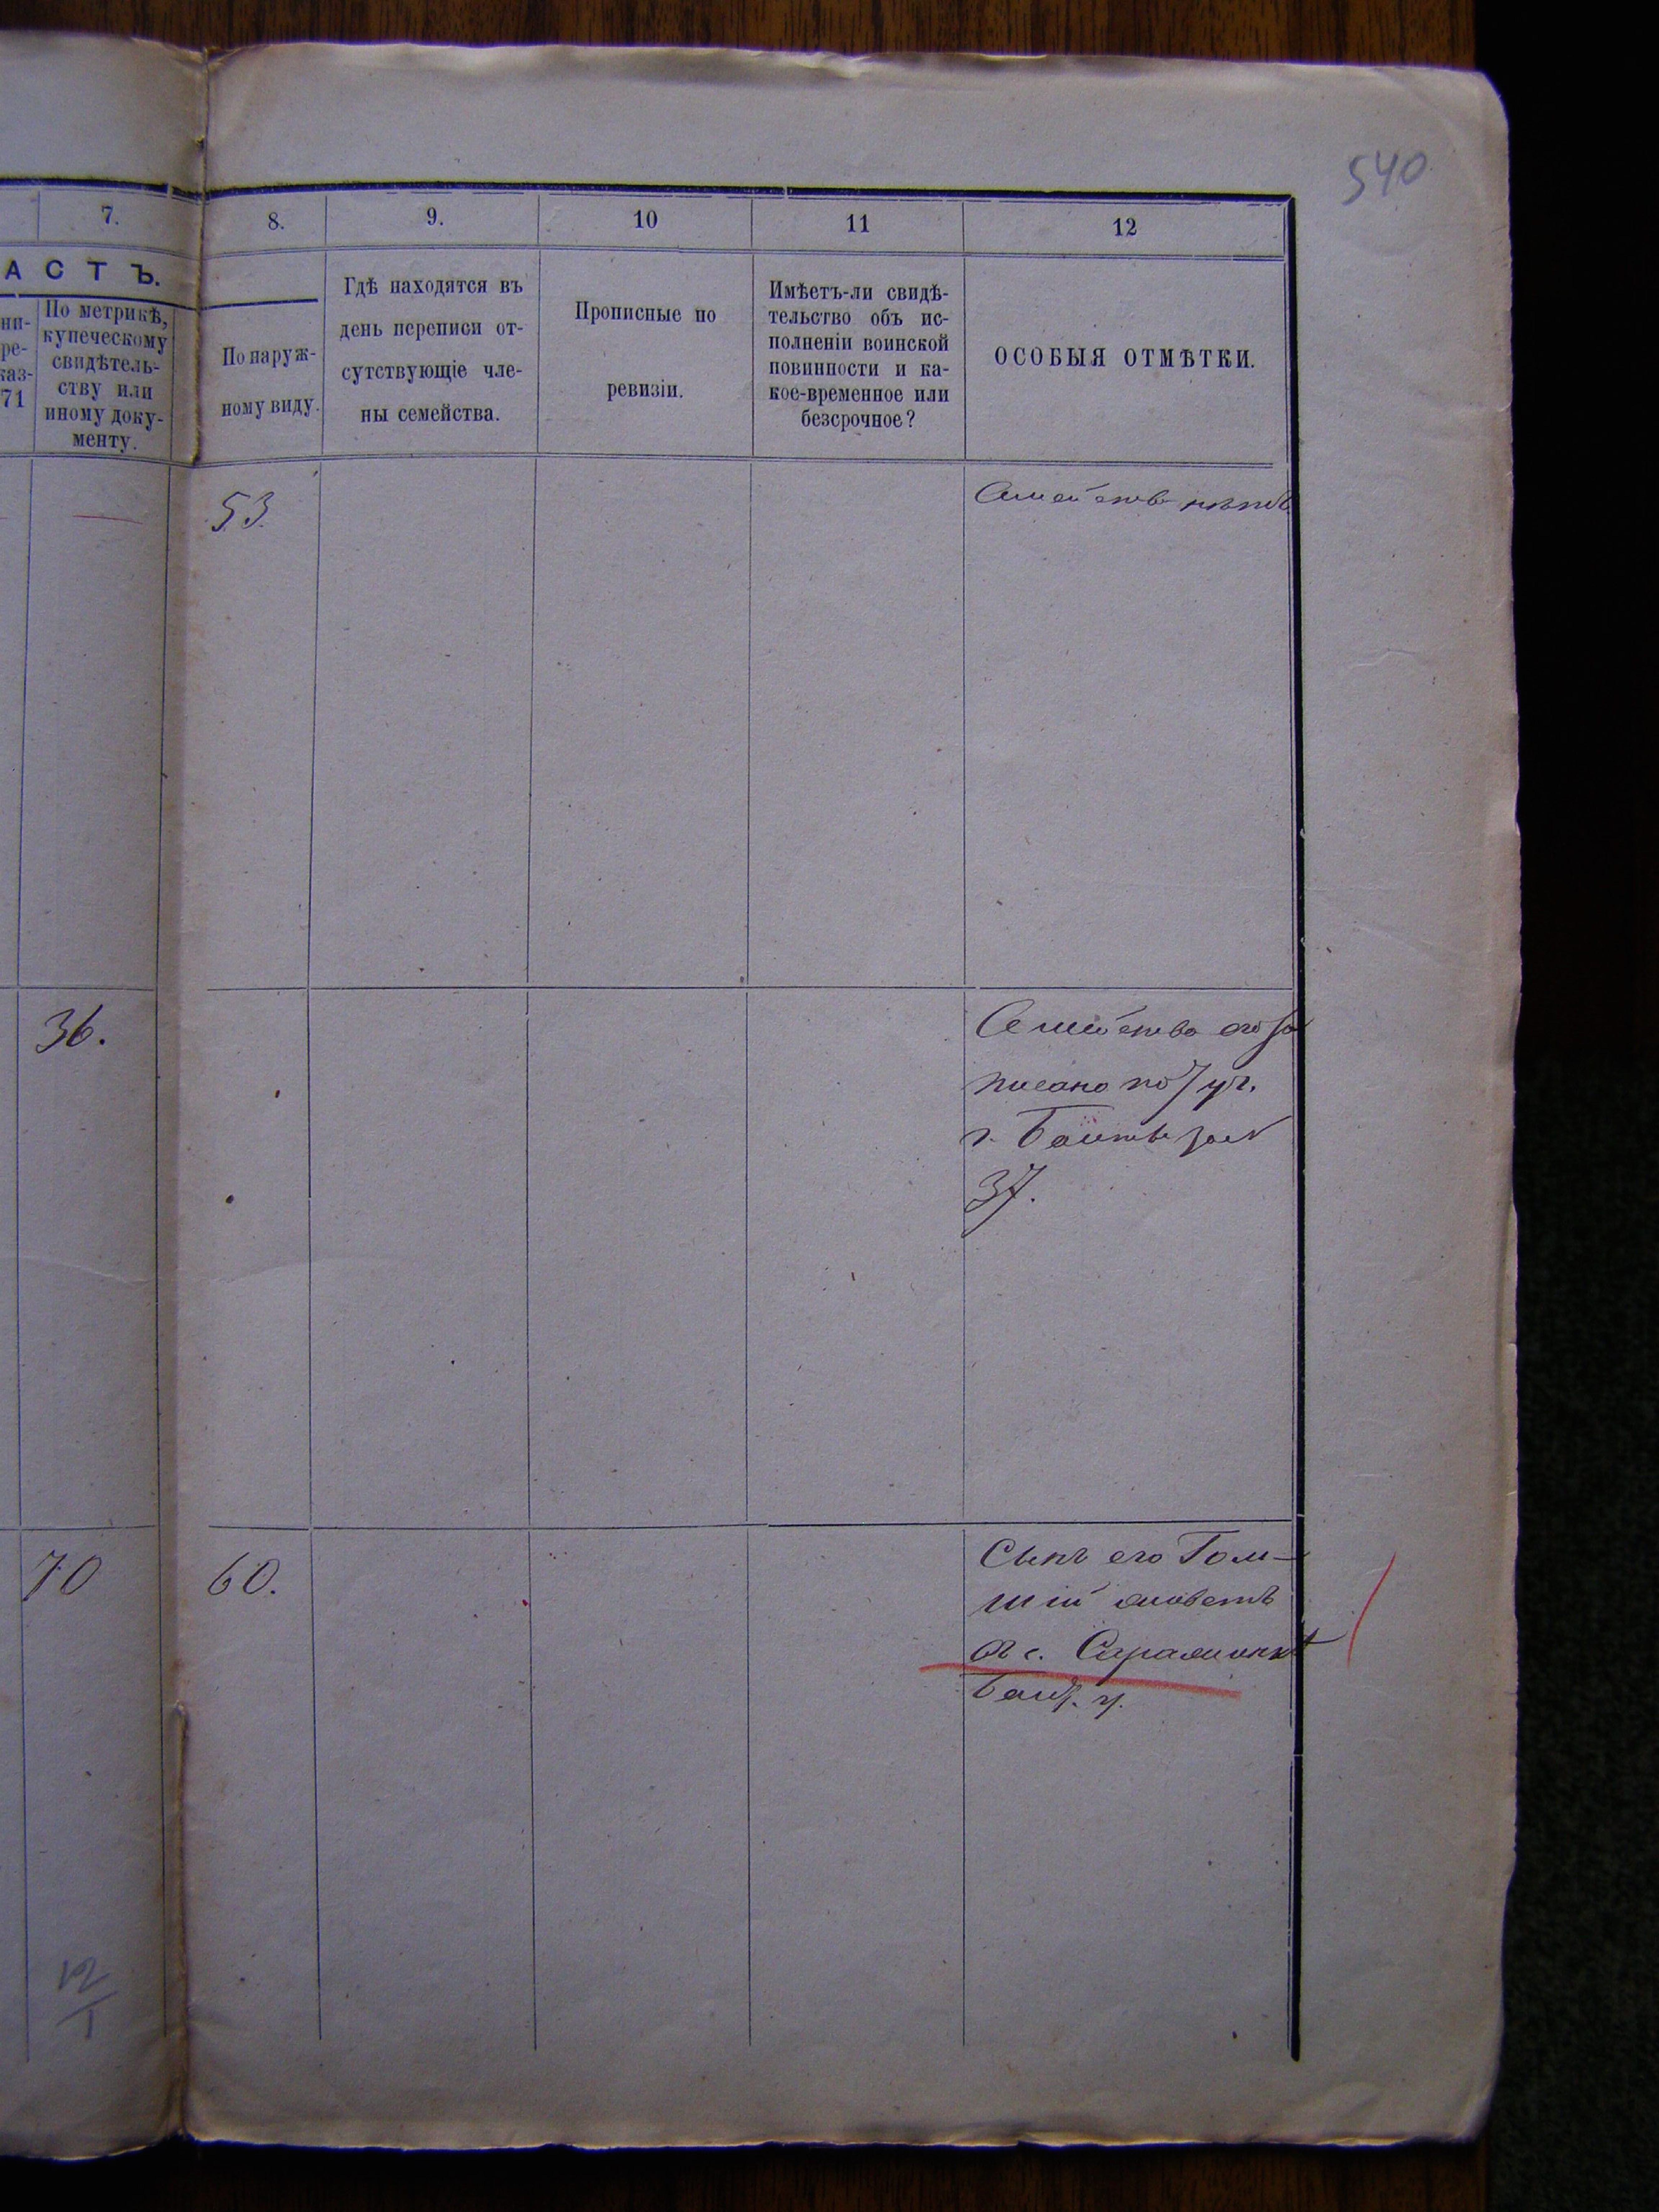 540
7. 8. 9. 10 11 12
АСТЪ.
По метрикѣ,
купеческому
свидѣтель-
ству или
иному доку-
менту.
По наруж-
ному виду.
Гдѣ находятся въ
день переписи от-
сутствующіе чле-
ны семейства.
Прописные по
ревизіи.
Имѣетъ-ли свидѣ-
тельство объ ис-
полненіи воинской
повинности и ка-
кое-временное или
безсрочное?
ОСОБЫЯ ОТМѢТКИ.
53. Семейства нѣтъ
36. Семейство его за
писано по 7 уч.
г. Балты
37.
70 60. Сынъ его
живетъ
въ с.
Балт. у.
12
1